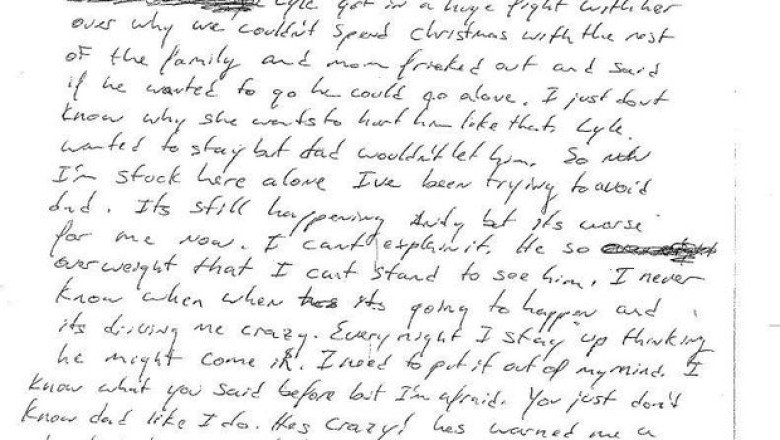 Lyle got in a huge fight with her
over why we couldn't spend christmas with the rest
of the family and mom freaked out and said
if he wanted to go he could go alone. I just dont
know why she wants to hurt him like that. Lyle
wanted to stay but dad wouldn't let him. So now
I'm stuck here alone I've been trying to avoid
dad. Its still happening Andy but its worse
for me now. I can't explain it. He so
overweight that I cant stand to see him. I never
know when when its going to happen and
its driving me crazy. Every night I stay up thinking
he might come in. I need to put it out of my mind. I
know what you said before but I'm afraid. You just don't
know dad like I do. Hes crazy! hes warned me a